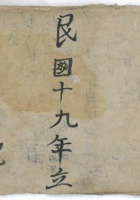 民國十九年立